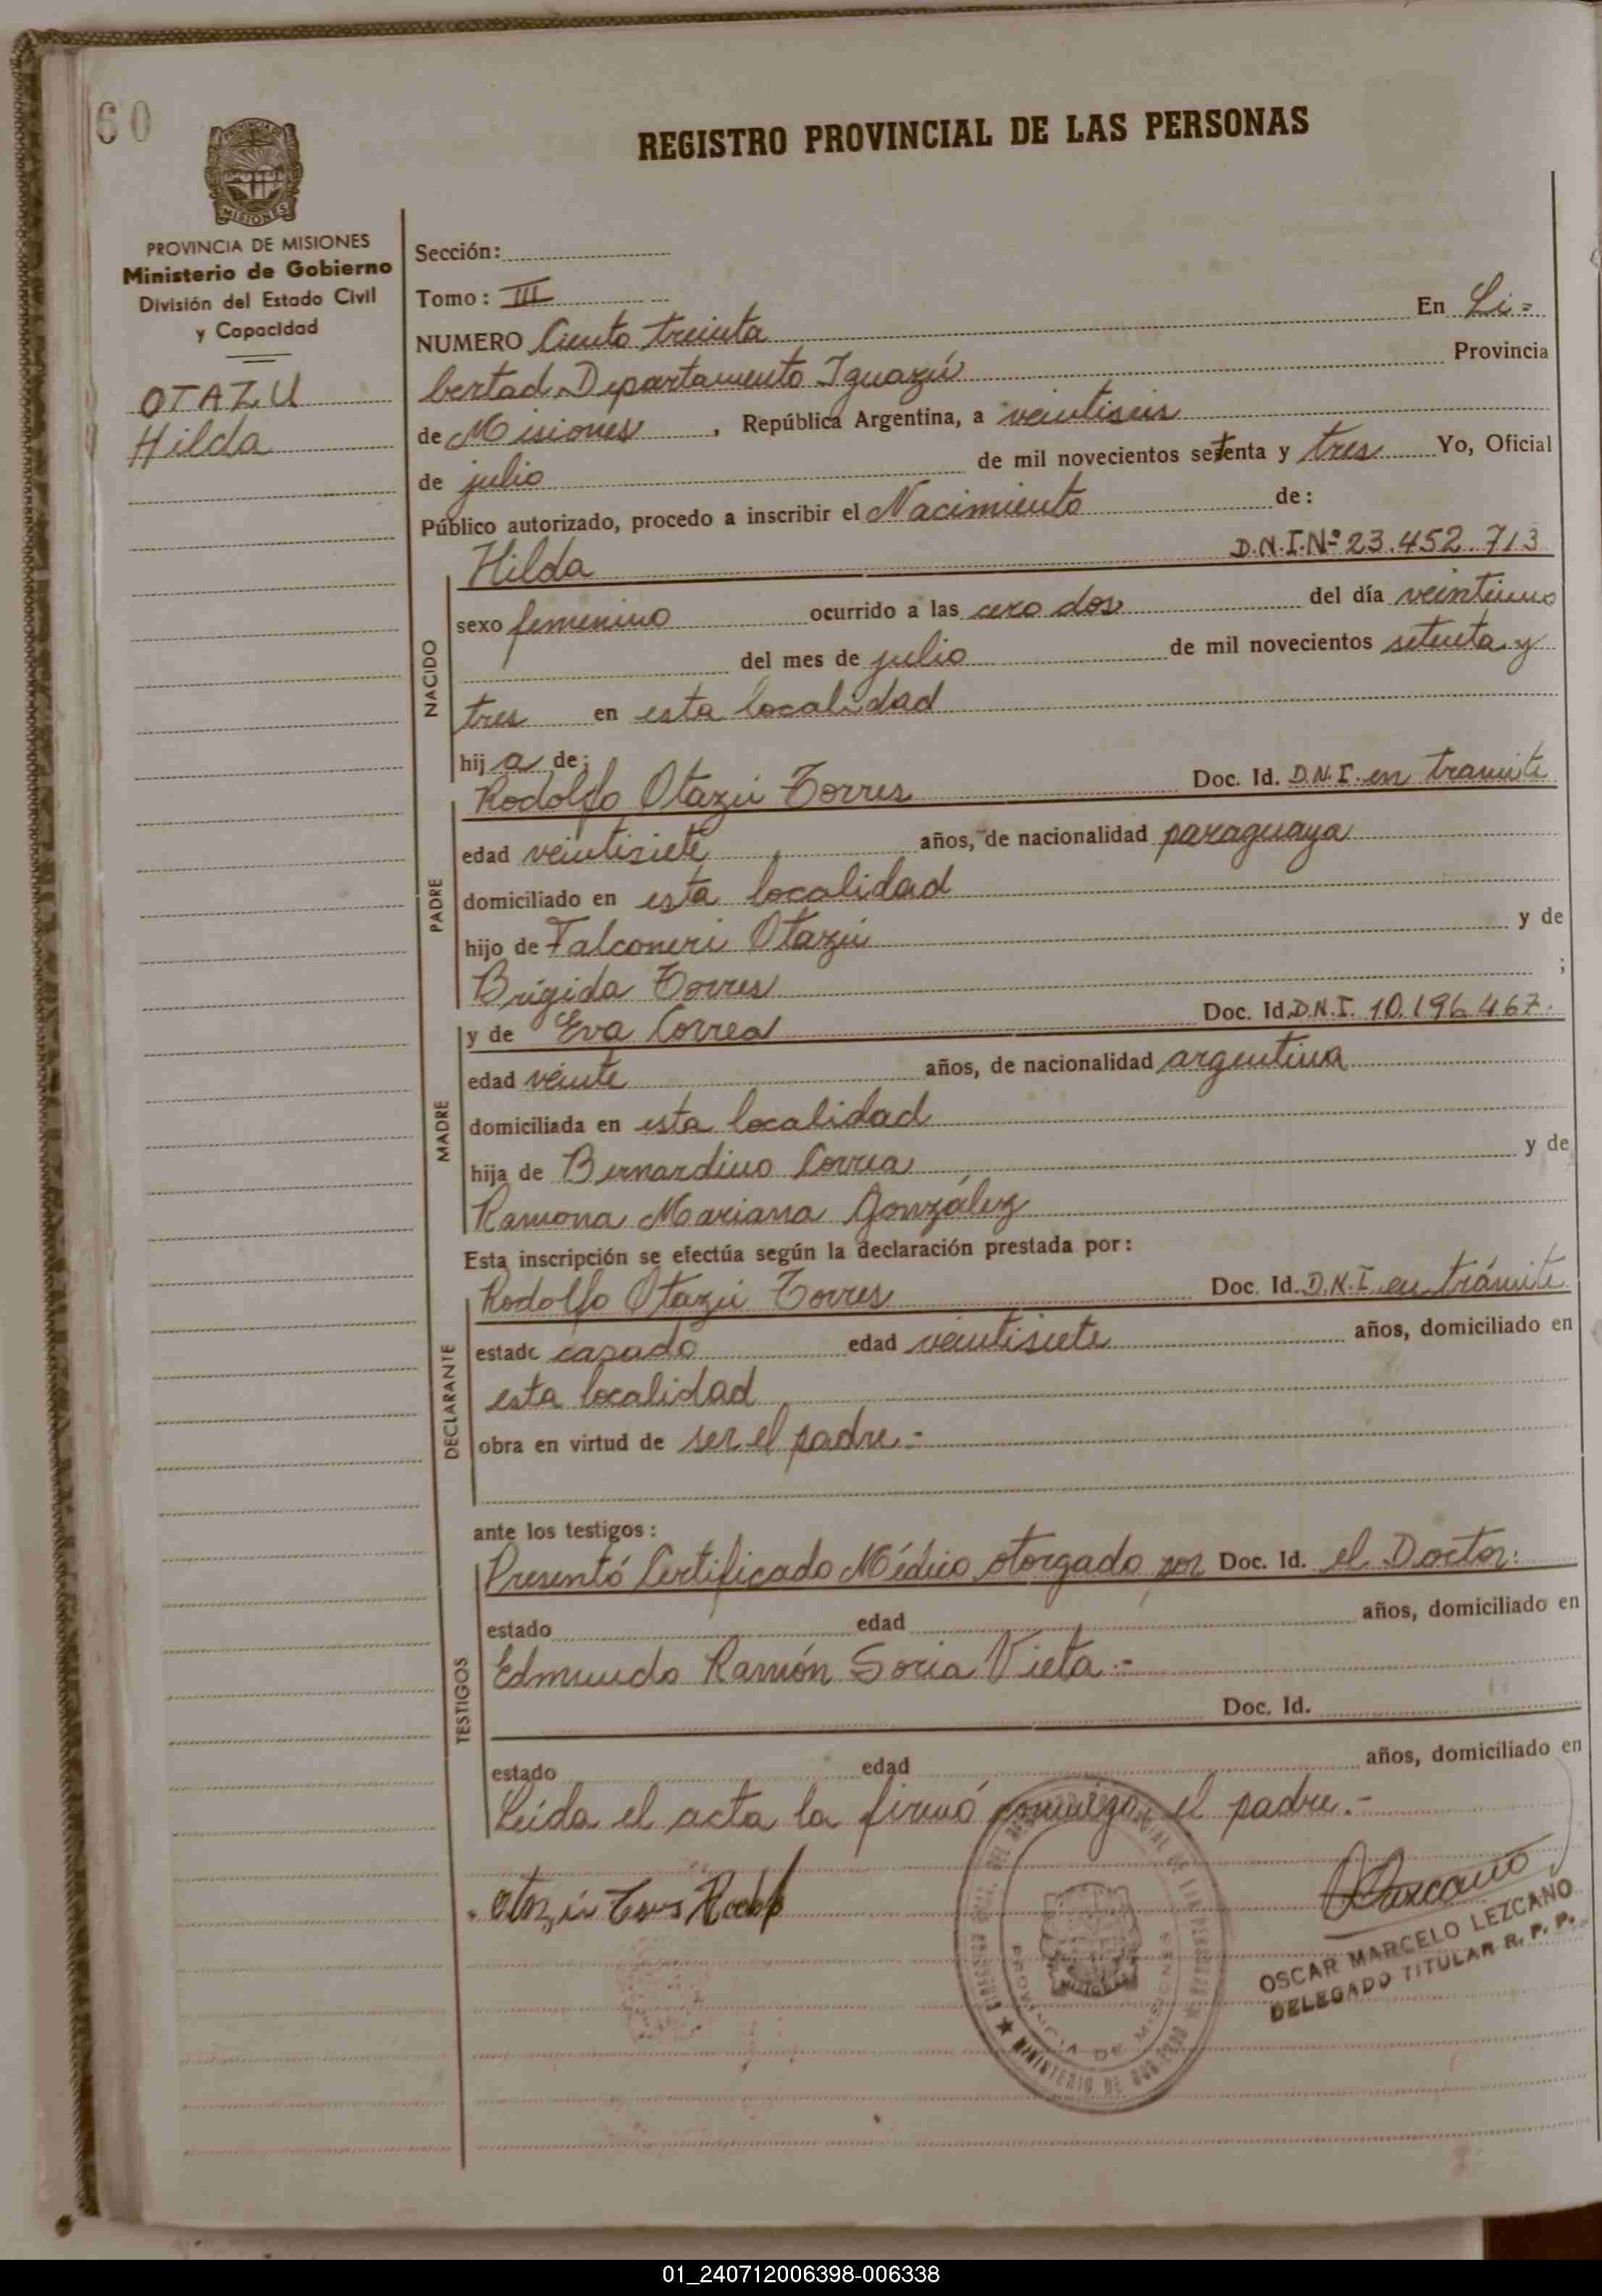 60
REGISTRO PROVINCIAL DE LAS PERSONAS
PROVINCIA DE
MISIONES
PROVINCIA DE MISIONES
Ministerio de Gobierno
División del Estado Civil
y Capacidad
OTAZU
Hilda
Sección:
Tomo: III
NUMERO Ciento treinta En Li=
bertad Departamento Iguazú Provincia
de Misiones, República Argentina, a veintiseis
de julio de mil novecientos setenta y tres Yo, Oficial
Público autorizado, procedo a inscribir el Nacimiento de:
NACIDO
Hilda D.N.I.Nº 23.452.713
sexo femenino ocurrido a las cero dos del día veintiuno
del mes de julio de mil novecientos setenta y
tres en esta localidad
hija de:
PADRE
Rodolfo Otazú Torres Doc. Id. D.N.I. en tramite
edad veintisiete años, de nacionalidad paraguaya
domiciliado en esta localidad
hijo de Falconeri Otazú y de
Brígida Torres ;
MADRE
y de Eva Correa Doc. Id. D.N.I. 10.196.467.
edad veinte años, de nacionalidad argentina
domiciliada en esta localidad
hija de Bernardino Correa y de
Ramona Mariana González
Esta inscripción se efectúa según la declaración prestada por:
DECLARANTE
Rodolfo Otazú Torres Doc. Id. D.N.I. en trámite
estado casado edad veintisiete años, domiciliado en
esta localidad
obra en virtud de ser el padre.-
ante los testigos:
TESTIGOS
Presentó Certificado Médico otorgado por Doc. Id. el Doctor:
estado edad años, domiciliado en
Edmundo Ramón Soria Vieta.-
Doc. Id.
estado edad años, domiciliado en
Leída el acta la firmó conmigo, el padre.-
Otazú Torres Rodolfo
PROVINCIA DE MISIONES
MINISTERIO DE GOBIERNO
OLezcano
OSCAR MARCELO LEZCANO
DELEGADO TITULAR R. P. P.
01_240712006398-006338